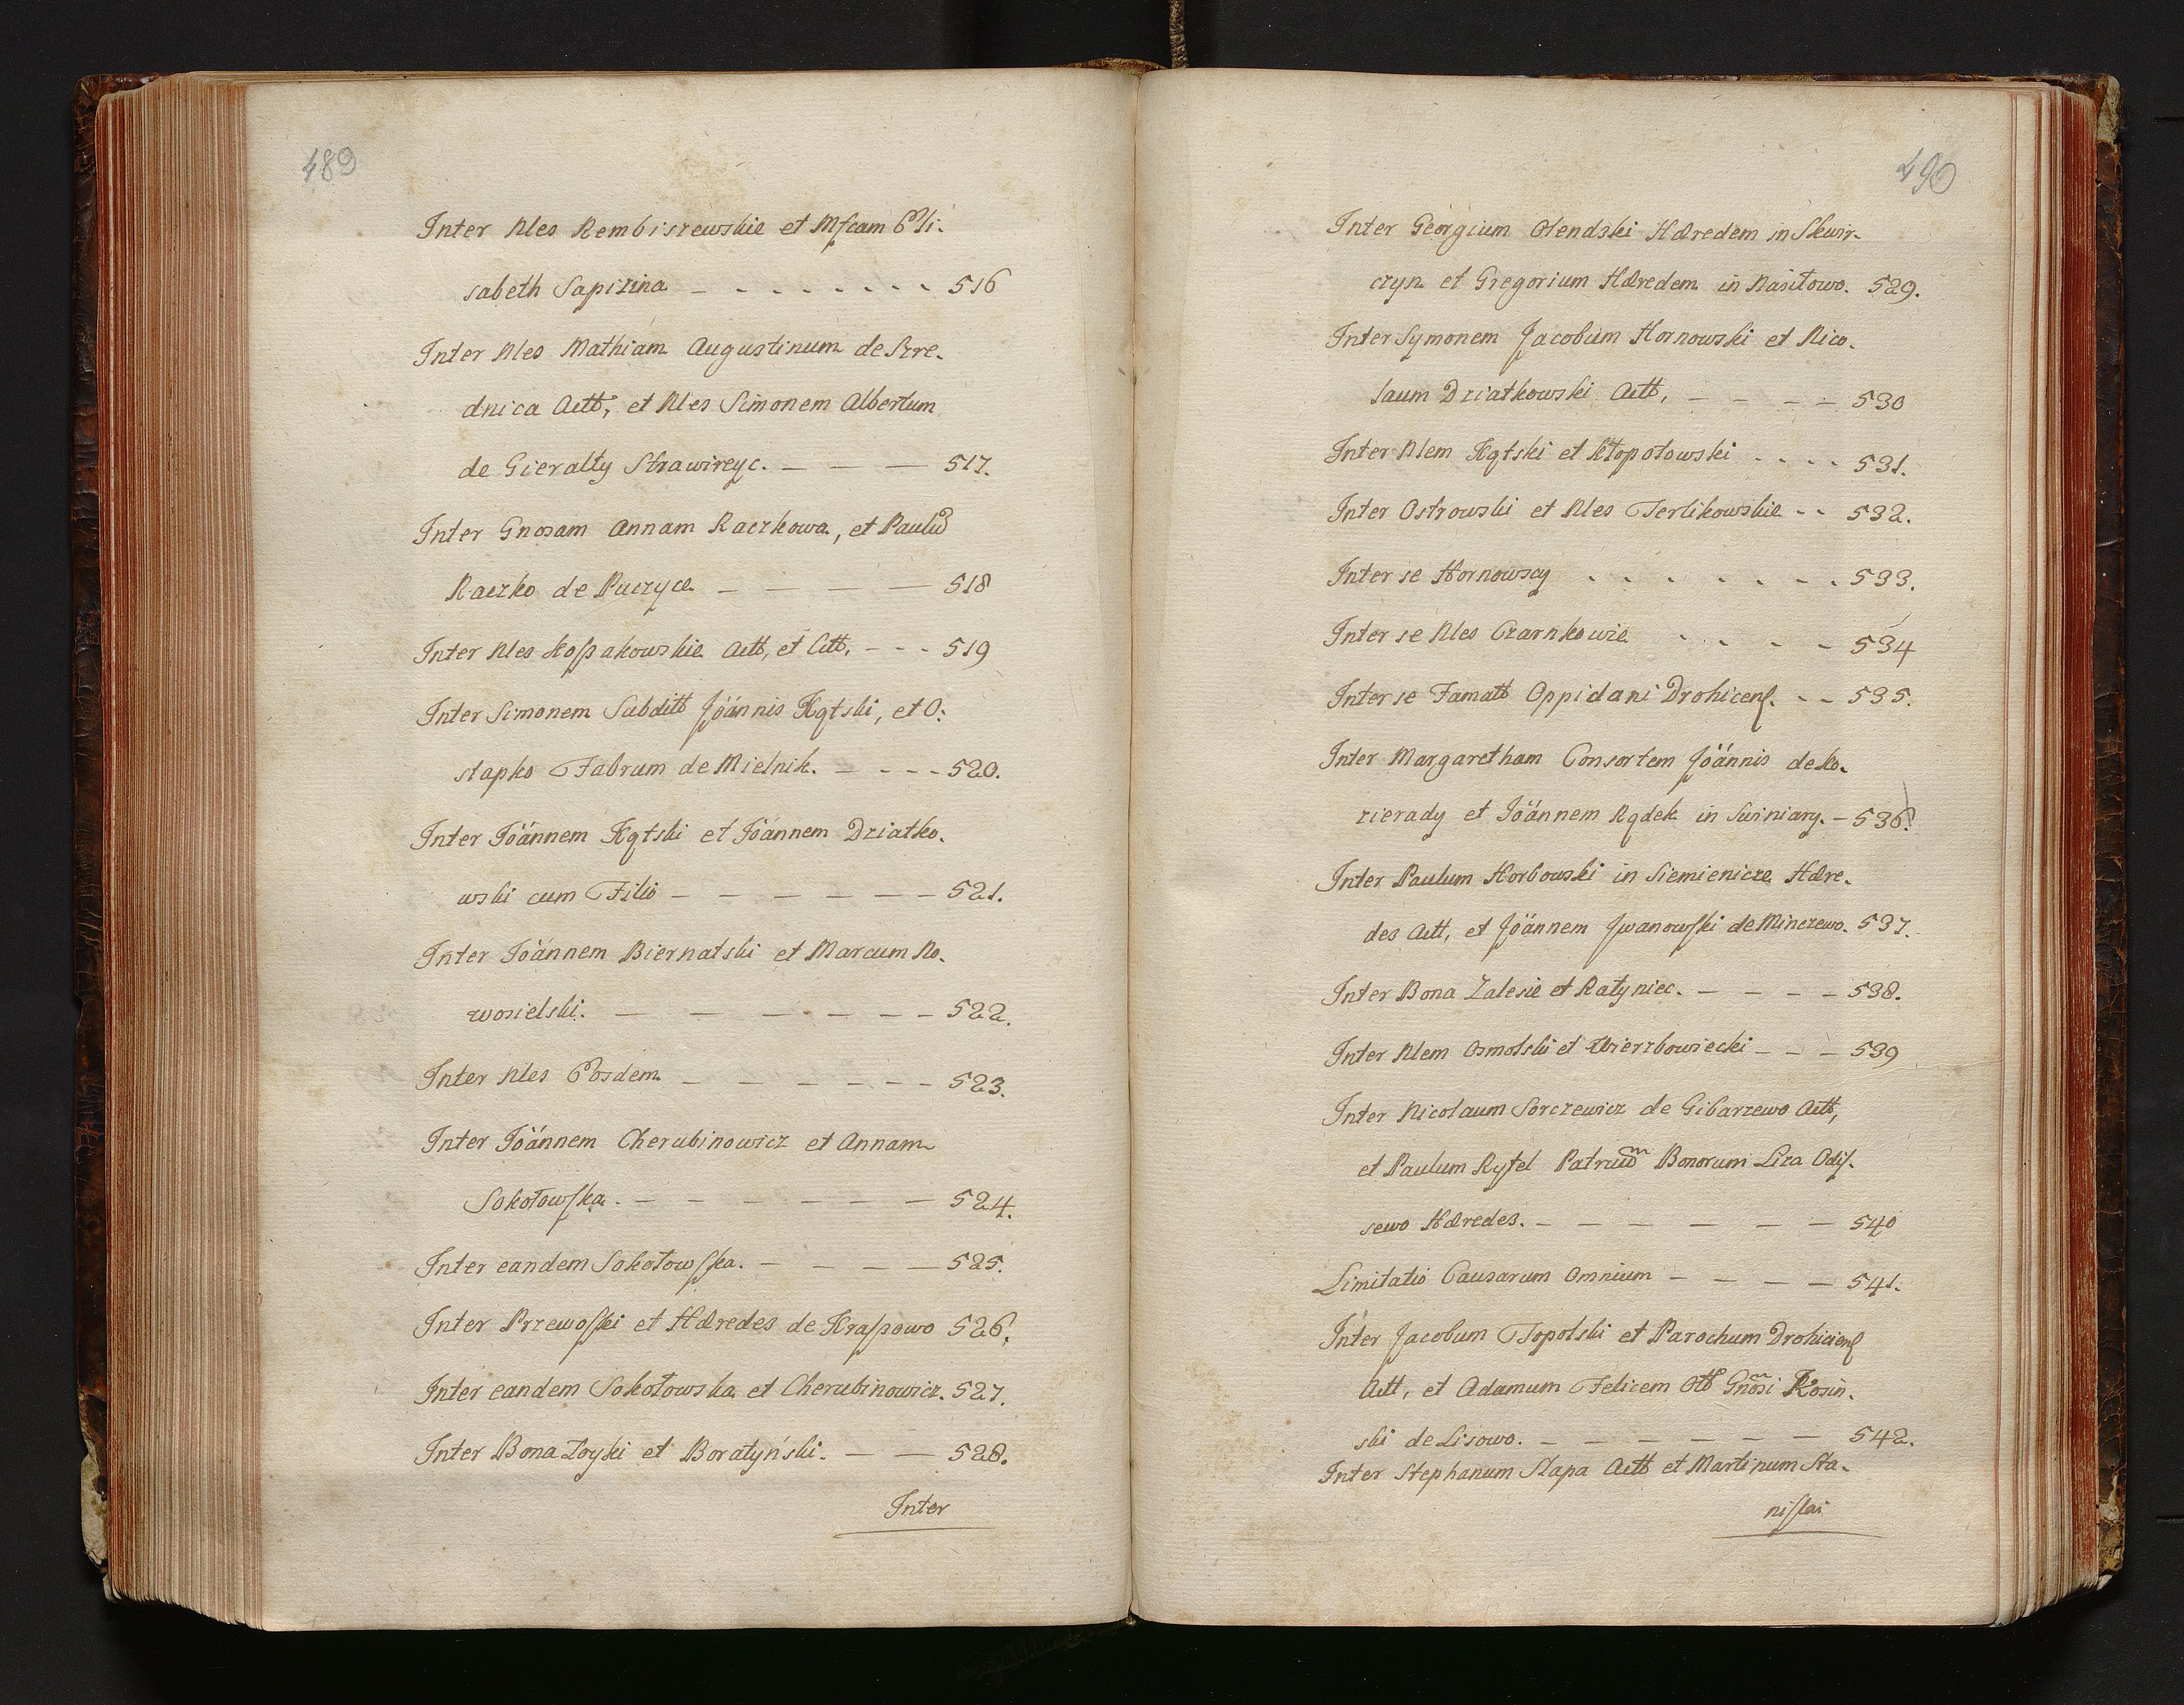 489
Inter Nles Rembiszewskie et Mfcam Eli-
sabeth Sapizina - - - - - - - - 516
Inter Nles Mathiam Augustinum de Szre-
dnica Actt, et Nles Simonem Albertum
de Gieralty Strawireyc. — — — 517.
Inter Gnosam Annam Raczkowa, et Paulu
Raczko de Puczyce — — — — 518
Inter Nles Kossakowskie Actt, et Citt. - - - 519
Inter Simonem Subditt Joannis Kątski, et O:
stapko Fabrum de Mielnik. - - - - 520.
Inter Joannem Kątski et Joannem Dziatko-
wski cum Filio — — — — — — 521.
Inter Joannem Biernatski et Marcum No-
wosielski. — — — — — — — 522.
Inter Nles Eosdem — — — — — — 523.
Inter Joannem Cherubinowicz et Annam
Sokołowska. — — — — — — — 524.
Inter eandem Sokołowska. — — — — 525.
Inter Przewoski et Hæredes de Krassowo 526.
Inter eandem Sokołowska et Cherubinowicz. 527.
Inter Bona Zoyski et Boratyński. — — 528.
Inter
490
Inter Georgium Olendski Hæredem in Skwir-
czyn et Gregorium Hæredem in Nasitowo. 529.
Inter Symonem Jacobum Hornowski et Nico-
laum Dziatkowski Actt, — — — — 530
Inter Nlem Kątski et Kłopotowski - - - - 531.
Inter Ostrowski et Nles Terlikowskie - - 532.
Inter se Hornowscy - - - - - - - - 533.
Inter se Nles Czarnkowie - - - - 534
Inter se Famatt Oppidani Drohicens. - - 535.
Inter Margaretham Consortem Joannis de Ko-
zierady et Joannem Rądek in Swiniary. - 536.
Inter Paulum Horbowski in Siemienicze Hære-
des Actt, et Joannem Jwanowski de Minczewo. 537.
Inter Bona Zalesie et Ratyniec. — — — — 538.
Inter Nlem Osmolski et Wierzbowiecki - - - 539
Inter Nicolaum Sorczewicz de Gibarzewo Actt,
et Paulum Rytel Patruum Bonorum Liza Odis-
sewo Hæredes. — — — — — — 540
Limitatio Causarum Omnium — — — — 541.
Inter Jacobum Topolski et Parochum Drohiciens
Actt, et Adamum Felicem Ott Gnosi Kosin-
ski de Lisowo. — — — — — — 542.
Inter Stephanum Slapa Actt et Martinum Sta-
nislai